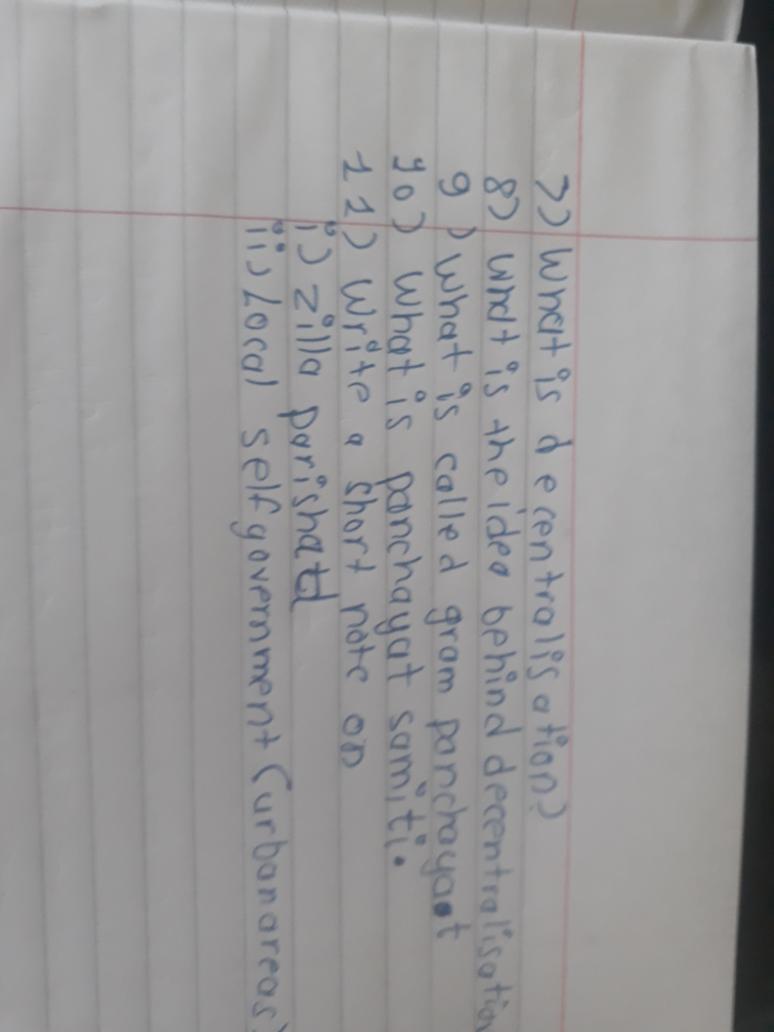 7) What is decentralisation?
8) What is the idea behind decentralisation
9) What is called gram panchayat
10) What is panchayat samiti.
11) Write a short note on
i) Zilla parishad
ii) Local self government (urban areas)